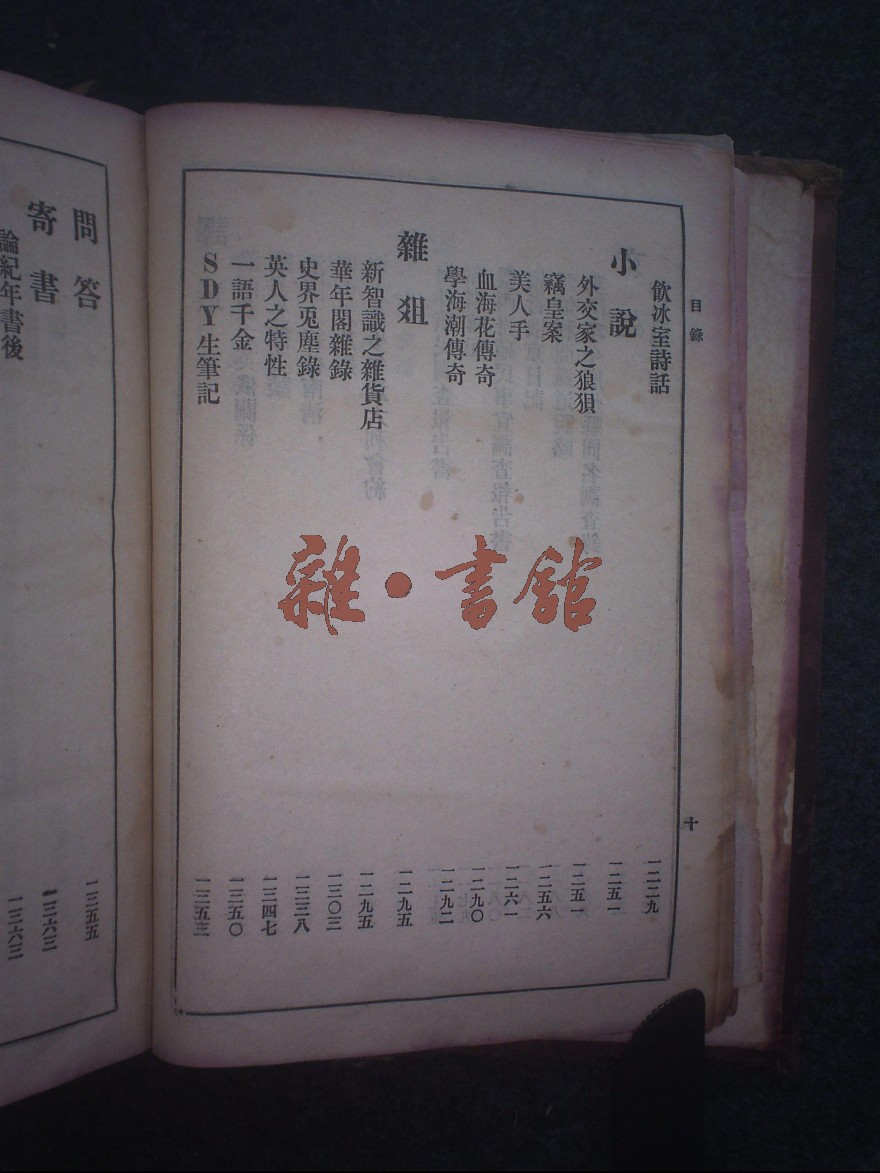 目錄
十
飲冰室詩話 一二二九
小說 一二五一
外交家之狼狽 一二五一
竊皇案 一二五六
美人手 一二六一
血海花傳奇 一二九〇
學海潮傳奇 一二九二
雜俎 一二九五
新智識之雜貨店 一二九五
華年閣雜錄 一三〇三
史界兎塵錄 一三三八
英人之特性 一三四七
一語千金 一三五〇
SDY生筆記 一三五三
問答 一三五五
寄書 一三六三
論紀年書後 一三六三
雜·書館